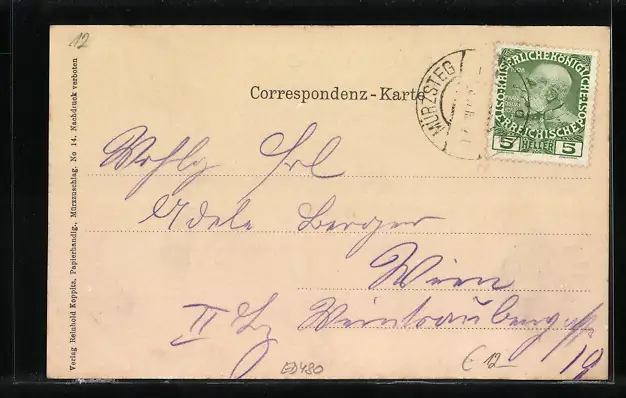 12
Correspondenz-Karte
MÜRZSTEG
KAISERLICHE KÖNIGLICHE ÖSTERREICHISCHE POST
5 HELLER 5
Wohlg Frl
Adele Berger
Wien
II Bz Weintraubengasse
19
ED480
€ 12-
Verlag Reinhold Koppitz, Papierhandlg., Mürzzuschlag. No 14. Nachdruck verboten